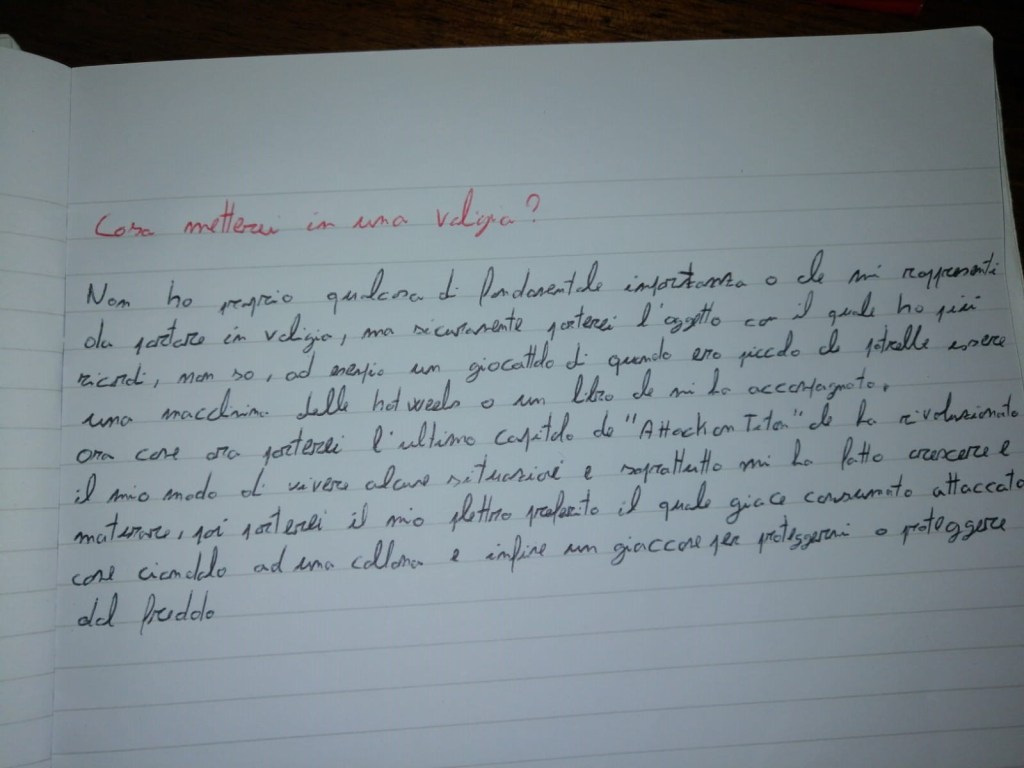 Cosa metterei in una valigia?
Non ho proprio qualcosa di fondamentale importanza o che mi rappresenti
da portare in valigia, ma sicuramente porterei l'oggetto con il quale ho più
ricordi, non so, ad esempio un giocattolo di quando ero piccolo che potrebbe essere
una macchinina delle hot weels o un libro che mi ha accompagnato,
ora come ora porterei l'ultimo capitolo de "Attack on Titan" che ha rivoluzionato
il mio modo di vivere alcune situazioni e soprattutto mi ha fatto crescere e
maturare, poi porterei il mio plettro preferito il quale giace consumato attaccato
come ciondolo ad una collana e infine un giaccone per proteggermi o proteggere
dal freddo